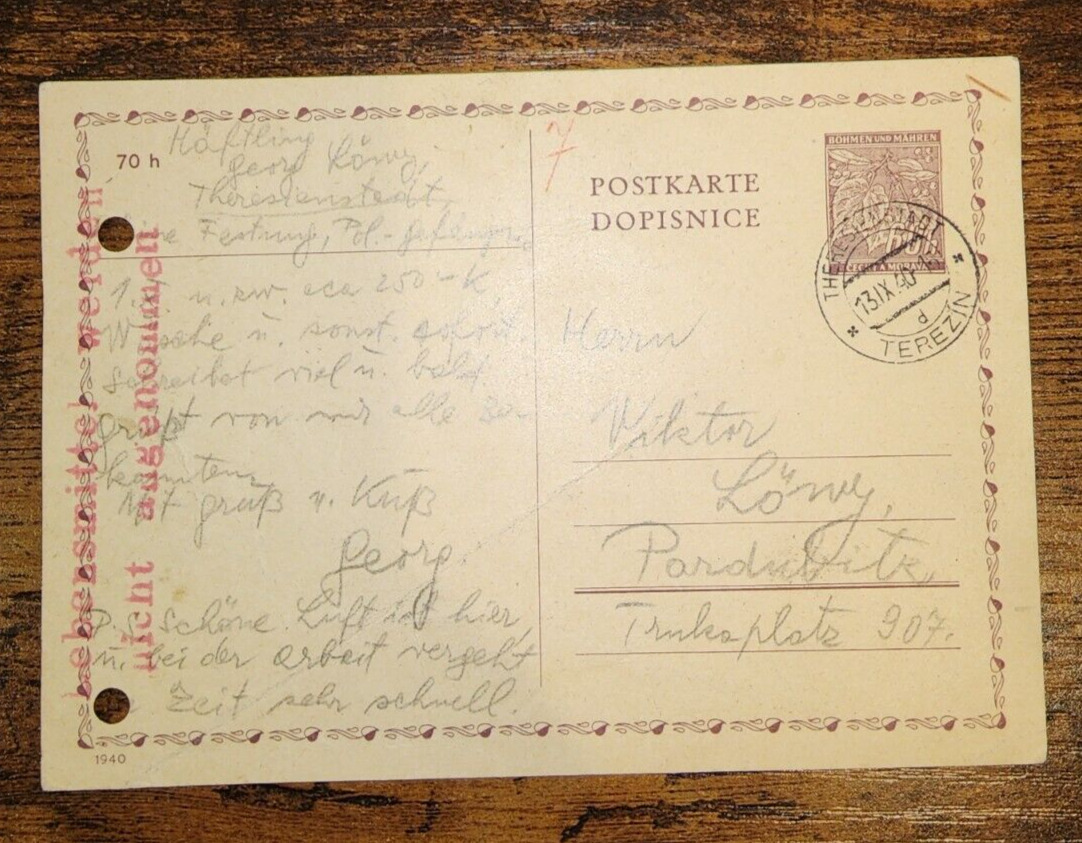 70 h
Häftling
Georg Löwy,
Theresienstadt,
Festung, Pol.-Gefängnis
1. u. zw. 250 K,
Wäsche u. sonst. sofort.
Schreibet viel u. bald
Grüßt von mir alle Be-
kannten,
Mit Gruß u. Kuß
Georg
P. S. Schöne Luft ist hier,
u. bei der Arbeit vergeht
Zeit sehr schnell.
Lebensmittel werden
nicht angenommen
7
POSTKARTE
DOPISNICE
BÖHMEN UND MÄHREN
ČECHY A MORAVA
THERESIENSTADT
13.IX.40
d
TEREZÍN
Herrn
Viktor
Löwy,
Pardubitz,
907.
1940